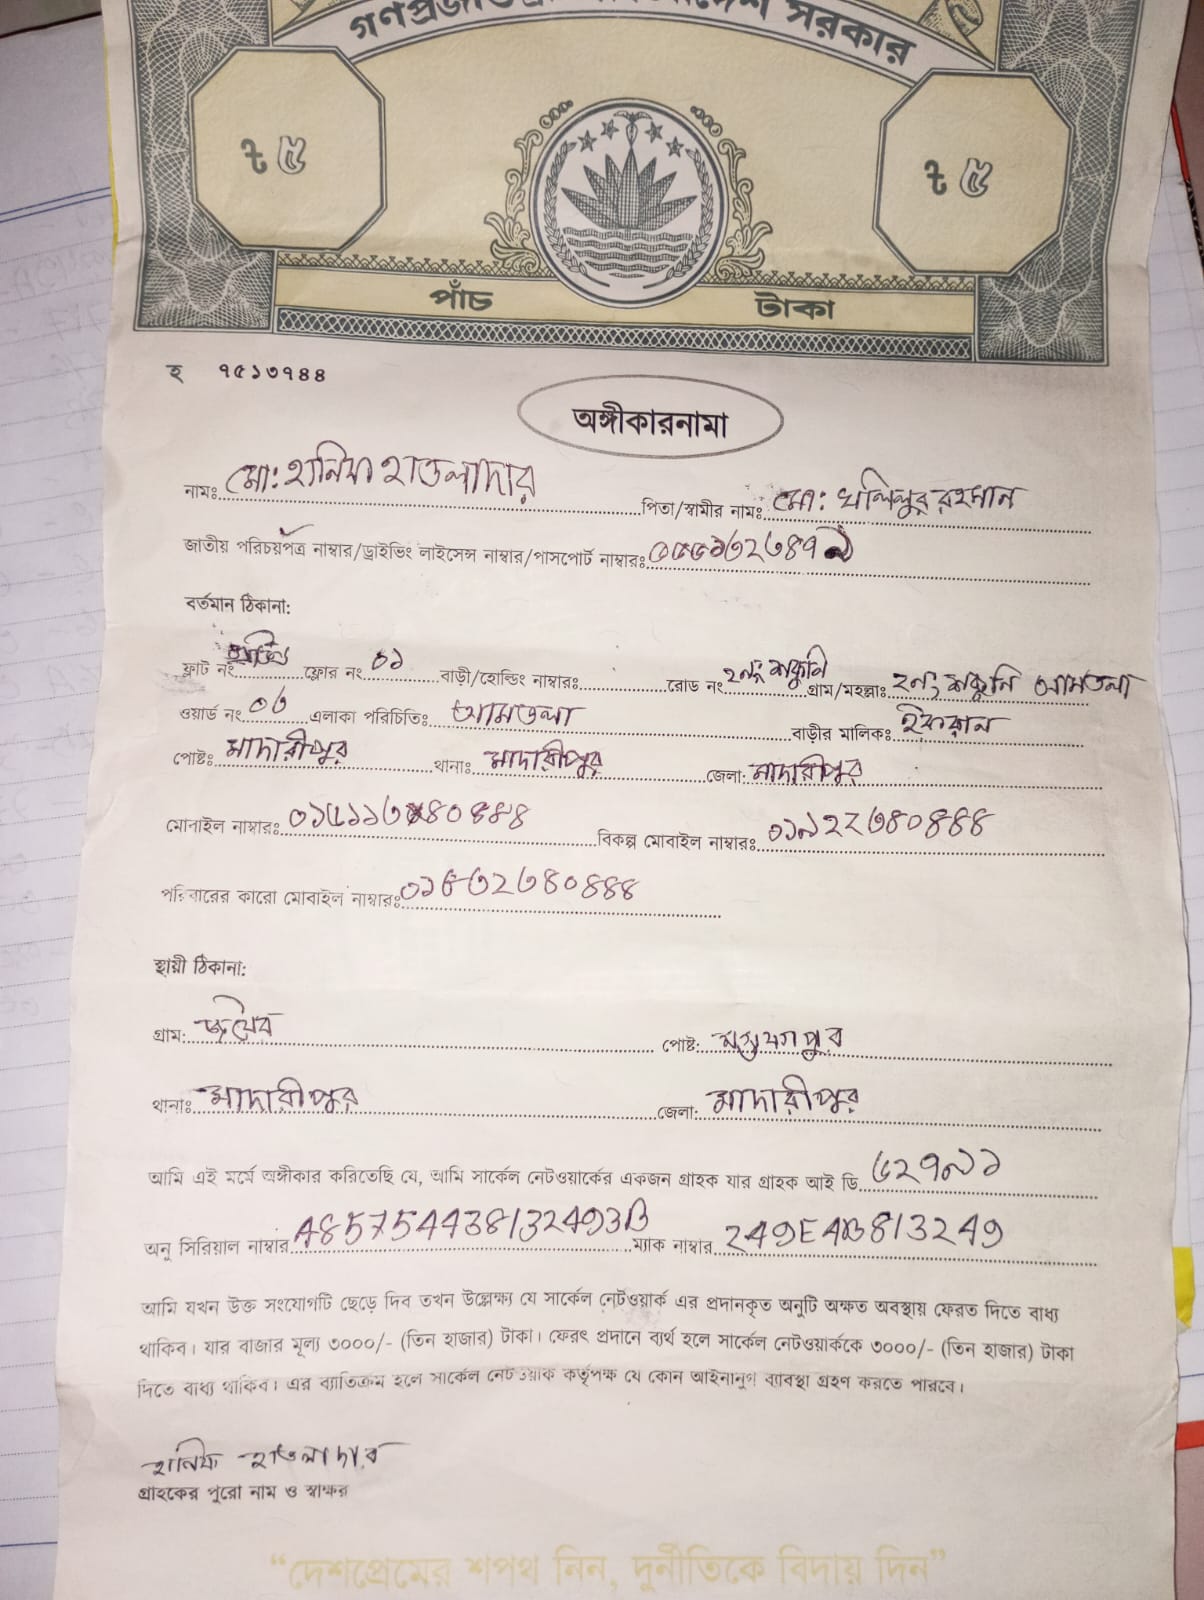 গণপ্রজাতন্ত্রী বাংলাদেশ সরকার
৳ ৫ ৳ ৫
পাঁচ টাকা
হ ৭৫১৩৭৪৪
অঙ্গীকারনামা
নামঃ মো: হানিফ হাওলাদার পিতা/স্বামীর নামঃ মো: খলিলুর রহমান
জাতীয় পরিচয়পত্র নাম্বার/ড্রাইভিং লাইসেন্স নাম্বার/পাসপোর্ট নাম্বারঃ
বর্তমান ঠিকানা:
ফ্লাট নং ফ্লোর নং ০১ বাড়ী/হোল্ডিং নাম্বারঃ রোড নং ২নং শকুনি গ্রাম/মহল্লাঃ ২নং শকুনি আমতলা
ওয়ার্ড নং ০৬ এলাকা পরিচিতিঃ আমতলা বাড়ীর মালিকঃ ইকরান
পোষ্টঃ মাদারীপুর থানাঃ মাদারীপুর জেলা: মাদারীপুর
মোবাইল নাম্বারঃ বিকল্প মোবাইল নাম্বারঃ ০১৯২২৬৪০৪৪৪
পরিবারের কারো মোবাইল নাম্বারঃ
স্থায়ী ঠিকানা:
গ্রাম: পোষ্ট:
থানাঃ মাদারীপুর জেলা: মাদারীপুর
আমি এই মর্মে অঙ্গীকার করিতেছি যে, আমি সার্কেল নেটওয়ার্কের একজন গ্রাহক যার গ্রাহক আই ডি ৬২৭৯১
অনু সিরিয়াল নাম্বার A85754438132493B ম্যাক নাম্বার 249E4B813249
আমি যখন উক্ত সংযোগটি ছেড়ে দিব তখন উল্লেক্ষ্য যে সার্কেল নেটওয়ার্ক এর প্রদানকৃত অনুটি অক্ষত অবস্থায় ফেরত দিতে বাধ্য
থাকিব। যার বাজার মূল্য ৩০০০/- (তিন হাজার) টাকা। ফেরৎ প্রদানে ব্যর্থ হলে সার্কেল নেটওয়ার্ককে ৩০০০/- (তিন হাজার) টাকা
দিতে বাধ্য থাকিব। এর ব্যাতিক্রম হলে সার্কেল নেটওয়ার্ক কর্তৃপক্ষ যে কোন আইনানুগ ব্যাবস্থা গ্রহণ করতে পারবে।
হানিফ হাওলাদার
গ্রাহকের পুরো নাম ও স্বাক্ষর
“দেশপ্রেমের শপথ নিন, দুর্নীতিকে বিদায় দিন”